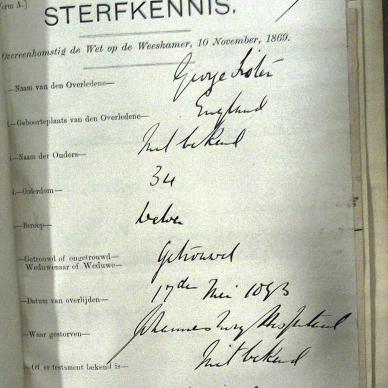 orm A.]
STERFKENNIS.
Overeenkomstig de Wet op de Weeskamer, 10 November, 1869.
—Naam van den Overledene— George
—Geboorteplaats van den Overledene— England
—Naam der Ouders— Niet bekend
—Ouderdom— 34
—Beroep—
—Getrouwd of ongetrouwd— Getrouwd
Weduwenaar of Weduwe—
—Datum van overlijden— 17de Mei 1893
—Waar gestorven— Johannesburg Hospitaal
—Of er testament bekend is— Niet bekend